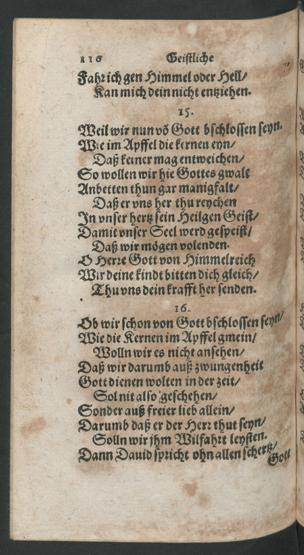 216 Geistliche
Fahr ich gen Himmel oder Hell/
Kan mich dein nicht entziehen.
15.
Weil wir nun võ Gott bschlossen seyn.
Wie im Apffel die kernen eyn/
Daß keiner mag entweichen/
So wollen wir hie Gottes gwalt
Anbetten thun gar manigfalt/
Daß er vns her thu reychen
In vnser hertz sein Heilgen Geist/
Damit vnser Seel werd gespeist/
Daß wir mögen volenden.
O Herre Gott von Himmelreich
Wir deine kindt bitten dich gleich/
Thu vns dein krafft her senden.
16.
Ob wir schon von Gott bschlossen seyn/
Wie die Kernen im Apffel gmein/
Wolln wir es nicht ansehen/
Daß wir darumb auß zwungenheit
Gott dienen wolten in der zeit/
Sol nit also geschehen/
Sonder auß freier lieb allein/
Darumb daß er der Herr thut seyn/
Solln wir jhm Wilfahrt leysten.
Dann Dauid spricht ohn allen schertz/
Gott